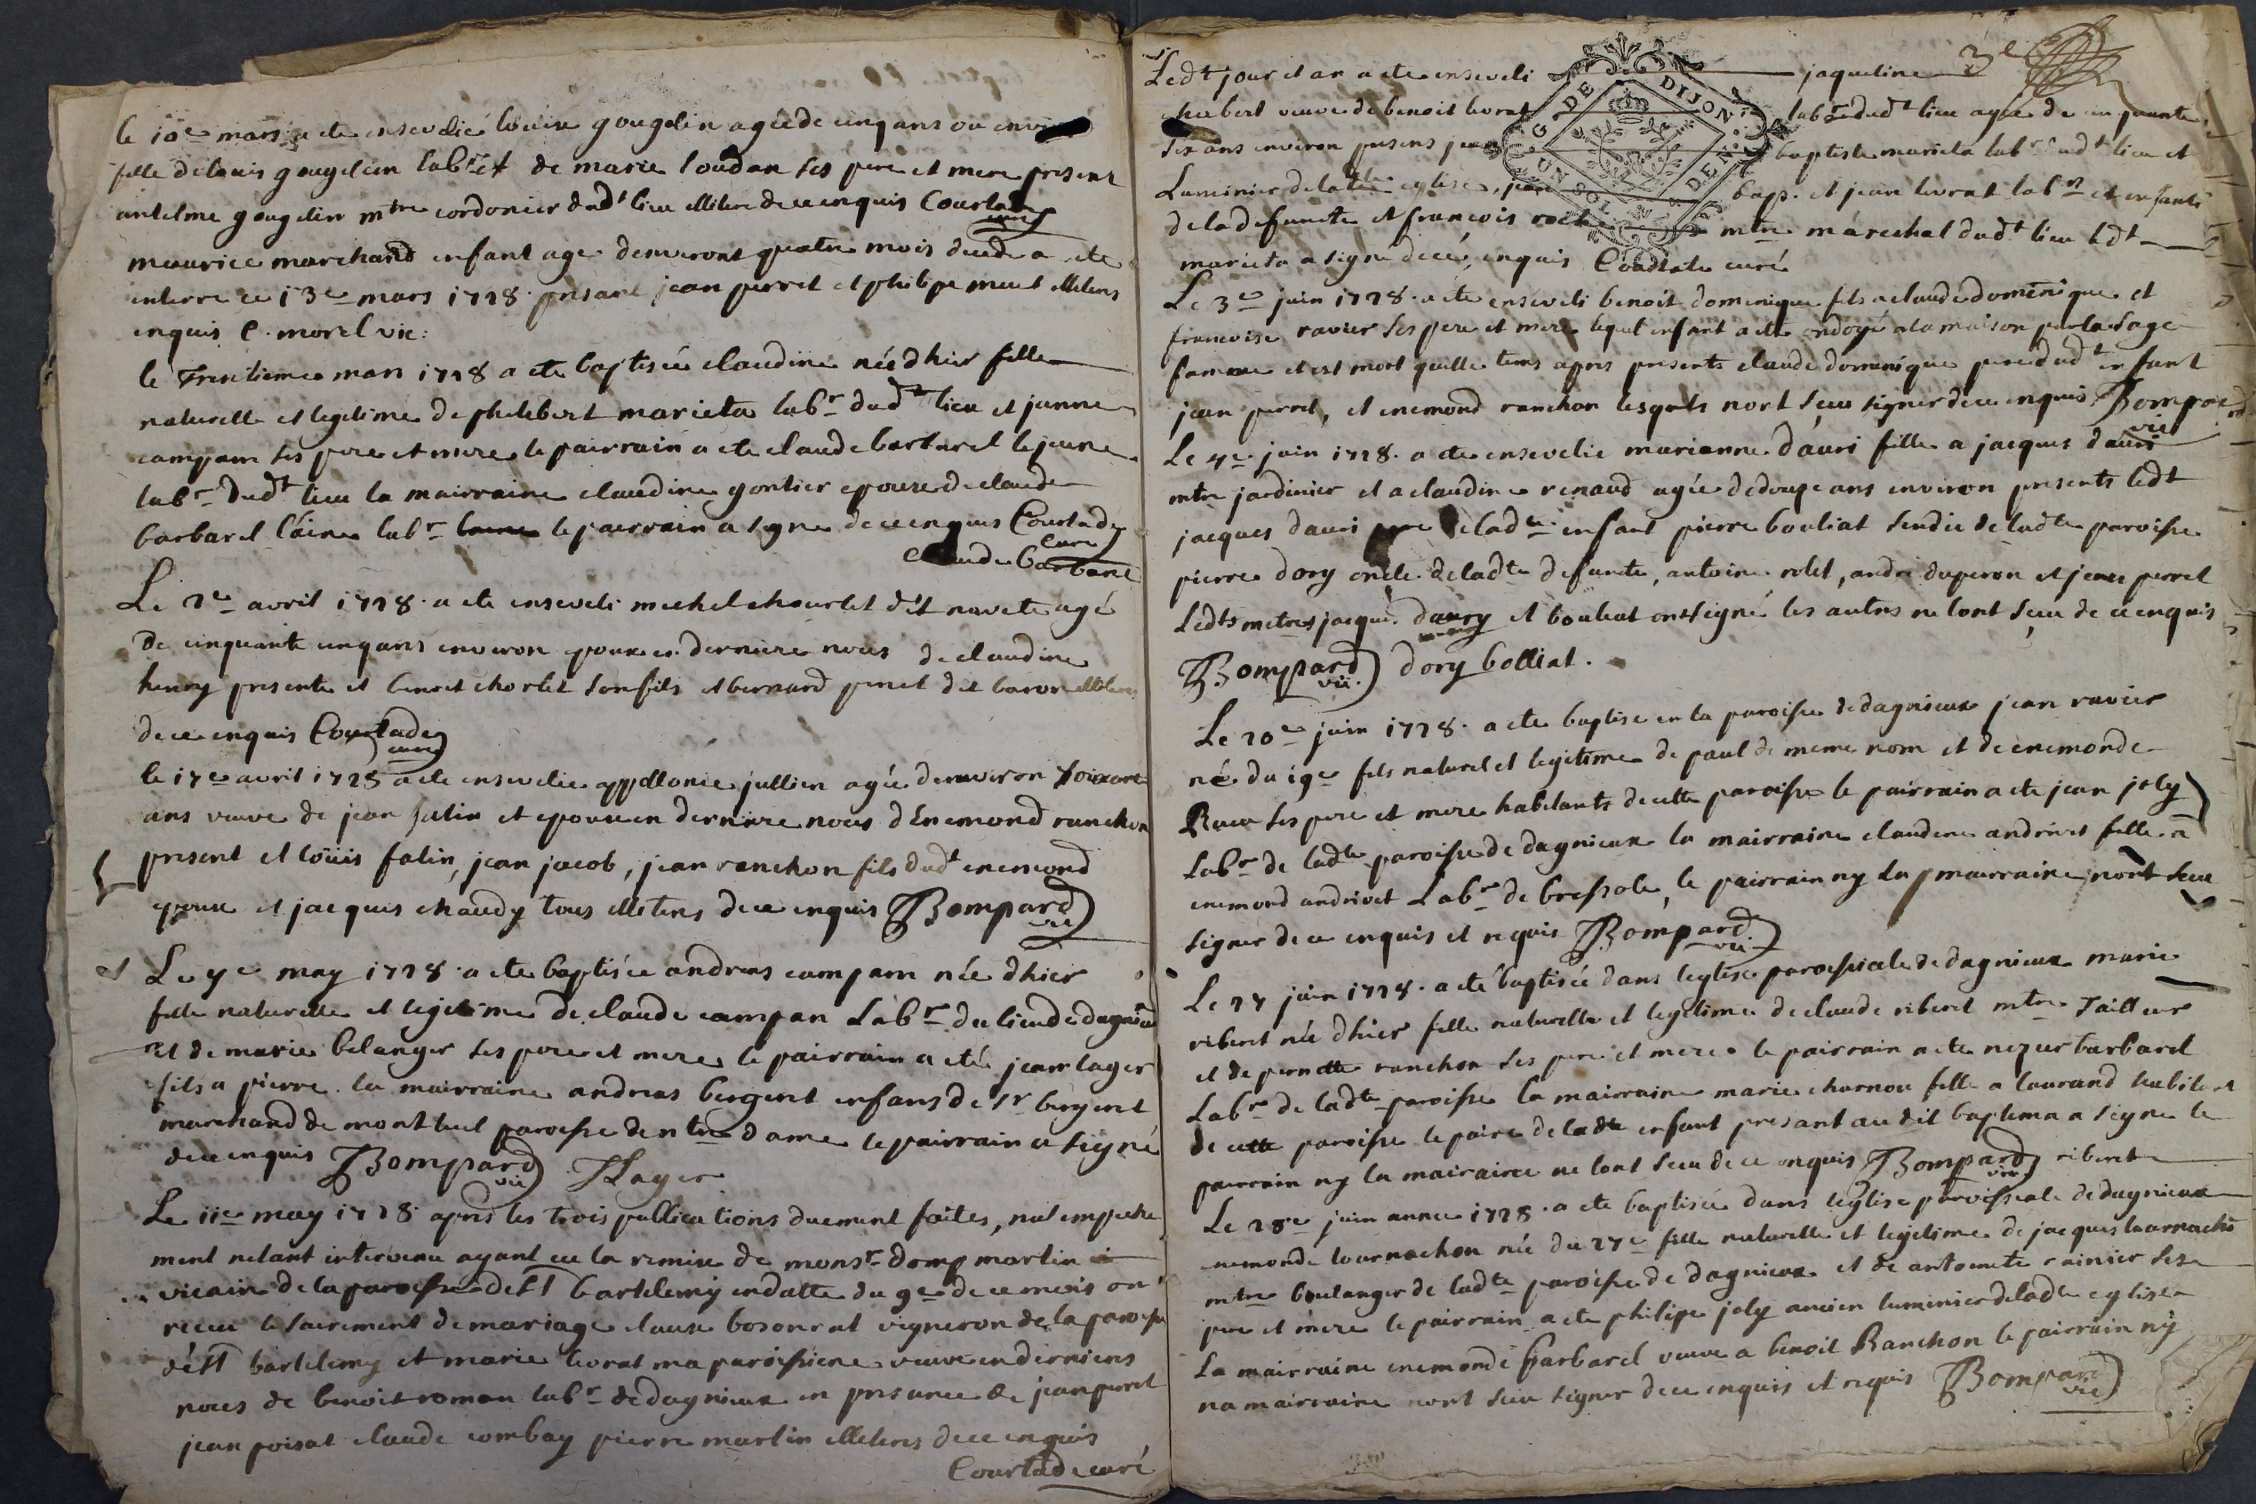 le 10e mars a ete ensevelie louise gougelin agée de cinq ans ou environ
fille de louis gougelin labr et de marie loudan ses pere et mere present
antelme gougelin mtre cordonier dudt lieu illiteré de ce enquis Courtade curé
meurice marchand enfant age denviront quatre mois decede a ete
enterre ce 13e mars 1728 presant jean perret et philipe meut illiteres
enquis C. morel vic:
le trentieme mars 1728 a ete baptisée claudine née dhier fille
naturelle et legitime de philibert marieta labr dudt lieu et janne
campam ses pere et mere le pairrain a ete claude barbaret le jeune
labr dudt lieu la mairraine claudine gontier epouse de claude
barbaret l'ainé labr le pairrain a signé de ce enquis Courtade curé
claude barbaret
Le 2e avril 1728 a ete enseveli michel chourlet dit navete agé
de cinquante cinq ans environ epoux en derniere noces de claudine
henry presente et benoit chorlet son fils et bernard perret dit baron illiteres
de ce enquis Courtade curé
le 17e avril 1728 a ete ensevelie appollonie jullien agée denviron soixante
ans veuve de jean falin et epouse en derniere noces d'Enemond ranchon
present et loüis falin, jean jacob, jean ranchon fils dudt enemond
epoux et jacques chaudy tous illiteres de ce enquis Bompard vic
Le 7e may 1728 a ete baptisée andreas campam née dhier
fille naturelle et legitime de claude campan Labr du lieu de dagnieux
et de marie belanger ses pere et mere le pairrain a eté jean lager
fils a pierre la mairraine andreas bergeret enfans de sr bergeret
marchand de montluel paroisse de ntre dame le pairrain a signé
de ce enquis Bompard vic JLager
Le 11e may 1728 apres les trois publications duement faites, nul empeche
ment netant intervenu ayant eu la remise de monsr domp martin
vicaire de la paroisse de st bartelemy en datte du 9e de ce mois on
receu le sacrement de mariage claude bosonnat vigneron de la paroisse
de st bartelemy et marie livrat ma paroissiene veuve en derniers
noces de benoit roman labr de dagnieux en presance de jean perret
jean poisat claude combay pierre martin illiteres de ce enquis
Courtade curé
2e
Ledt jour et an a ete enseveli jaqueline
chubert veuve de benoit livrat labr dudt lieu agée de cinquante
six ans environ presens jean baptiste marieta labr dudt lieu et
Luminier de ladte eglise, bap. et jean livrat labrs et enfants
de la defuncte et françois roch mtre maréchal dudt lieu ledt
marieta a signé de ce enquis Courtade curé
Le 3e juin 1728 a ete enseveli benoit domenique fils a claude domenique et
francoise ravier ses pere et mere lequel enfant a ete ondoyé a la maison par la sage
famme et est mort quelle tems apres presents claude domenique pere dudt enfant
jean perret, et enemond ranchon lesquels nont seu signer de ce enquis Bompard vic
Le 4e juin 1728 a ete ensevelie marianne dauri fille a jacques dauri
mtre jardinier et a claudine renaud agée de douze ans environ presents ledt
jacques dauri pere de ladte enfant pierre bouliat sendic de ladte paroisse
pierre dory oncle de ladte defuncte, antoine rolet, andre duperon et jean perret
Ledts metres jacques daury et bouliat ont signé les autres ne lont seu de ce enquis
Bompard vic. dory bolliat.
Le 20e juin 1728 a ete baptise en la paroisse de dagnieux jean ravier
né du 19e fils naturel et legitime de paul de meme nom et de enemonde
Ruen ses pere et mere habitants de cette paroisse le pairrain a ete jean joly
Labr de ladte paroisse de dagnieux la mairraine claudine andrivet fille a
enemond andrivet Labr de bressole, le pairrain ny la mairraine nont seu
signer de ce enquis et requis Bompard vic
Le 24 juin 1728 a eté baptisée dans leglise paroissiale de dagnieux marie
riberet née dhier fille naturelle et legitime de claude riberet mtre tailleur
et de pernette ranchon ses pere et mere le pairrain a ete nezur barbaret
Labr de ladte paroisse la mairraine marie charnou fille a laurand habitant
de cette paroisse le paire de ladte enfant presant au dit baptema a signe le
pairrain ny la mairaine ne lont seu de ce enquis Bompard vic riberet
Le 28e juin annee 1728 a ete baptisée dans leglise paroissiale de dagnieux
enemonde tournachon née du 27e fille naturelle et legitime de jacques tournachon
mtre boulanger de ladte paroisse de dagnieux et de antoinete rainier ses
pere et mere le pairrain a ete philipe joly ancien luminier de ladte eglise
La mairraine enemonde barbaret veuve a benoit Ranchon le pairrain ny
na mairraine nont seu signer de ce enquis et requis Bompard vic
G. DE DIJON
UN SOL
8 DEN.